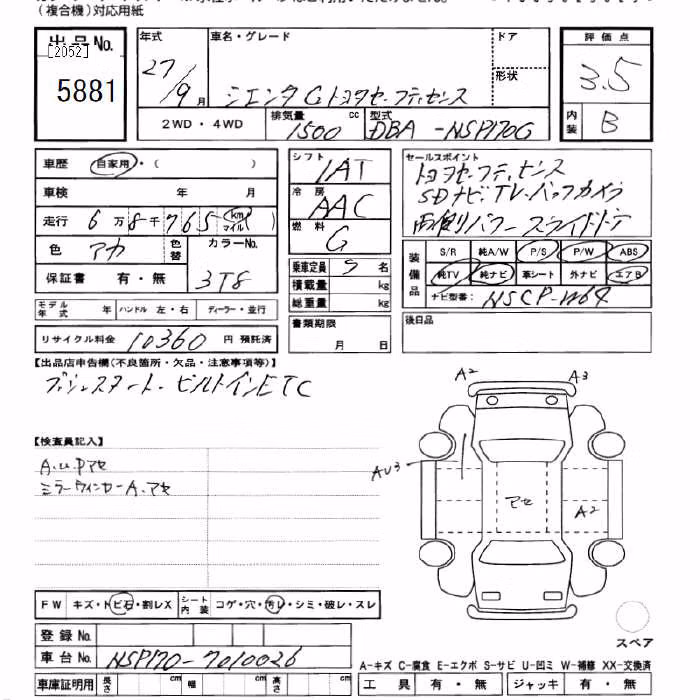 (複合機)対応用紙
出品No. [2052] 5881
年式 27/9月
車名・グレード シエンタ G トヨタセーフティセンス
ドア
形状
評価点 3.5
内装 B
2WD・4WD
排気量 1500 cc
型式 DBA-NSP170G
車歴 自家用・( )
車検 年 月
走行 6万8千765 km マイル )
色 アカ 色替 カラーNo. 3T8
保証書 有・無
シフト IAT
冷房 AAC
燃料 G
乗車定員 5名
積載量 kg
総重量 kg
セールスポイント
トヨタセーフティセンス
SDナビ TV・バックカメラ
両側パワースライドドア
装備品 S/R 純A/W P/S P/W ABS
純TV 純ナビ 革シート 外ナビ エアB
ナビ型番: NSCP-W64
モデル年式 年 ハンドル 左・右 ディーラー・並行
リサイクル料金 10360円 預託済
書類期限 月 日
後日品
【出品店申告欄(不良箇所・欠品・注意事項等)】
プッシュスタート・ビルトインETC
【検査員記入】
A.U.Pアセ
ミラーウィンカーA.アセ
A2 A3
AU3
アセ
A2
スペア
FW キズ・トビ石・割レX シート内装 コゲ・穴・汚レ・シミ・破レ・スレ
登録No.
車台No. NSP170-7010026
車庫証明用 長さ cm 幅 cm 高さ cm
A-キズ C-腐食 E-エクボ S-サビ U-凹ミ W-補修 XX-交換済
工具 有・無 ジャッキ 有・無